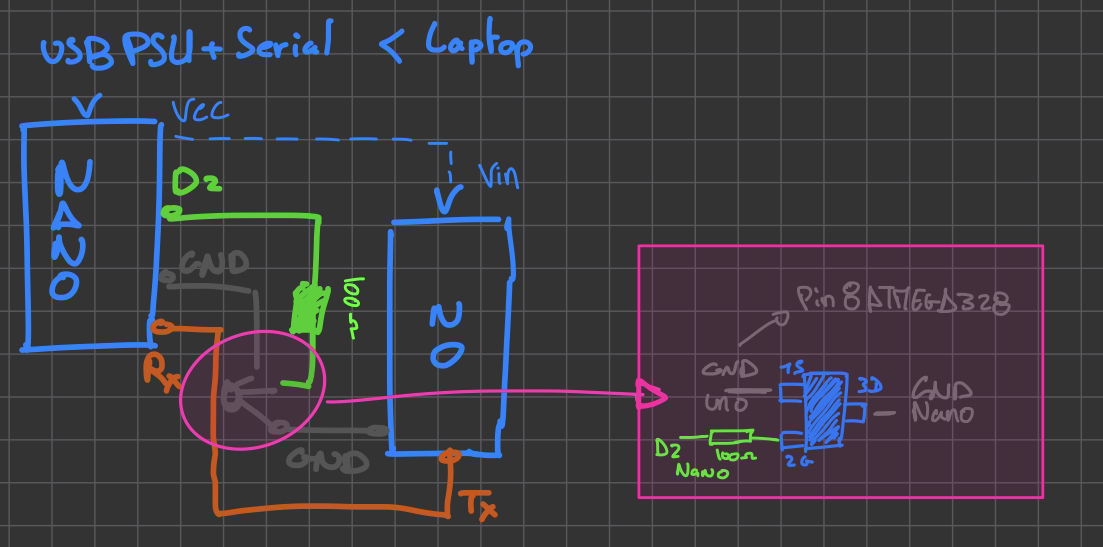 USB PSU + Serial < Laptop
VCC
NANO
D2
Vin
GND
100Ω
NO
Rx
GND
Tx
Pin 8 ATMEGA328
GND
UNO
1S
3D
GND
Nano
D2
Nano
100Ω
2G